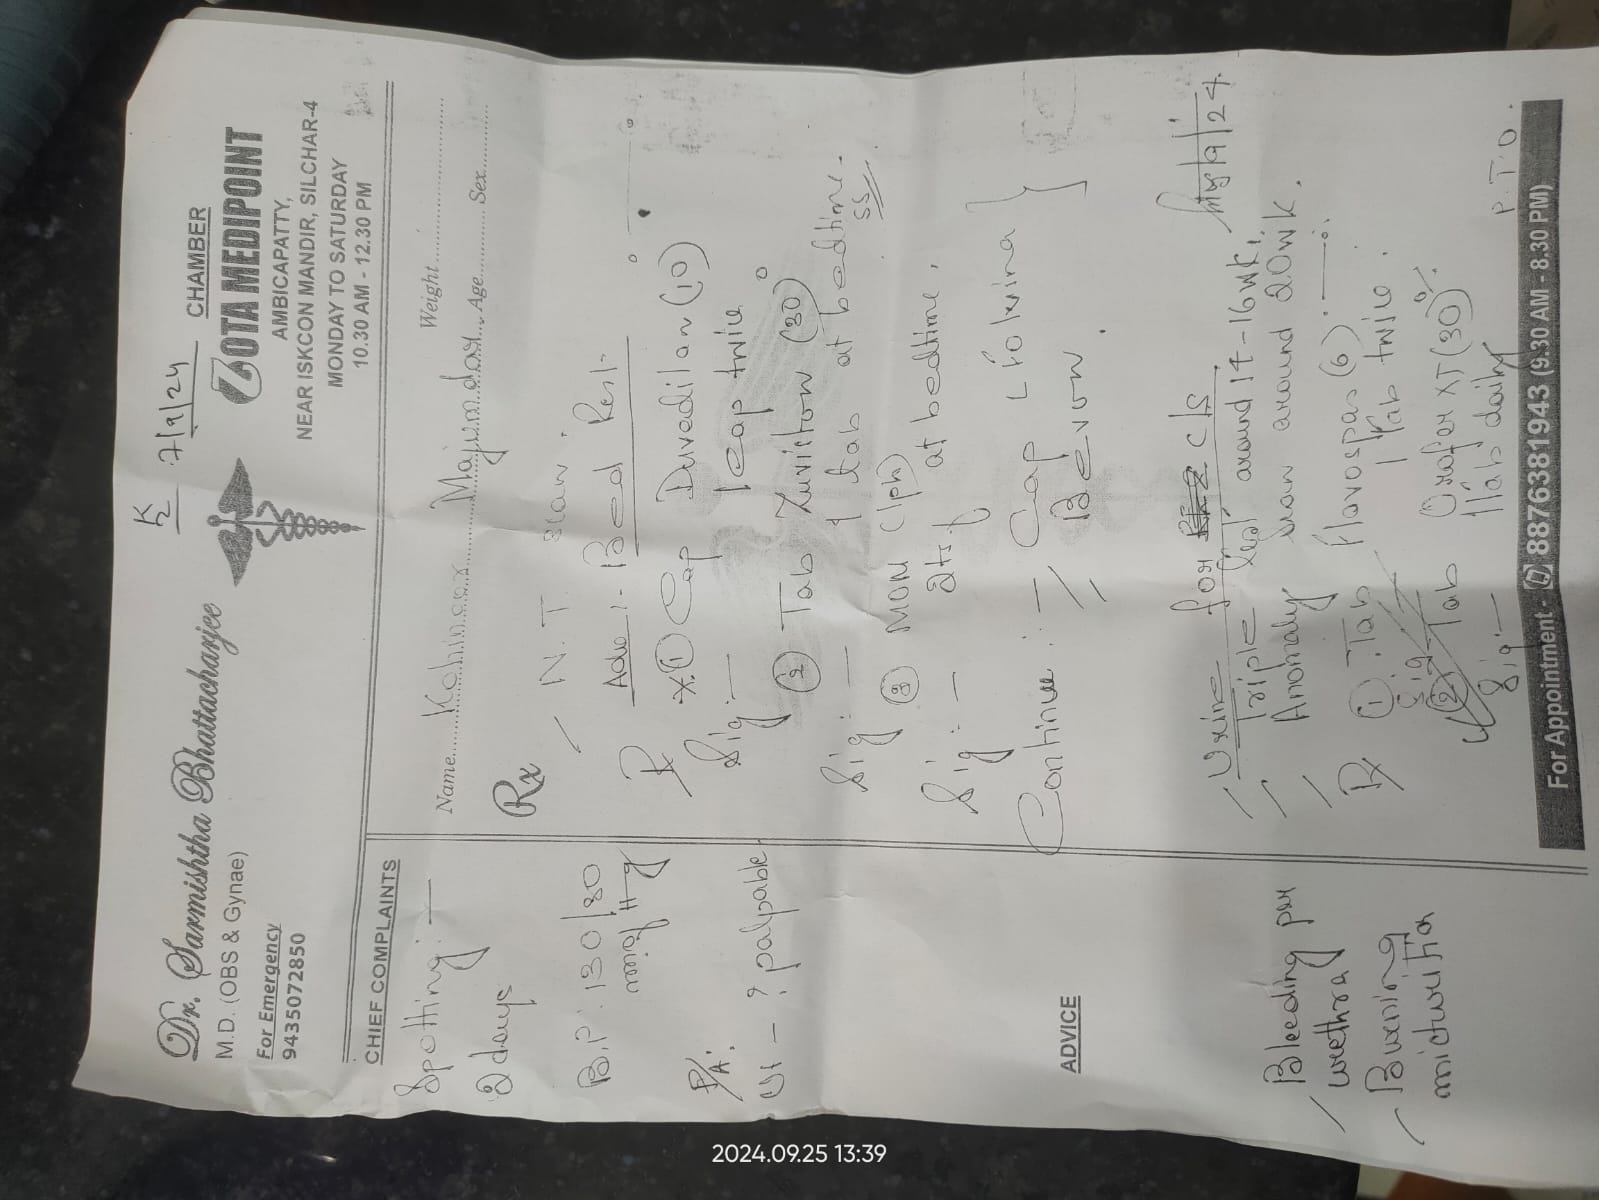 K 7/9/24
Dr. Sarmishtha Bhattacharjee
M.D. (OBS & Gynae)
For Emergency
9435072850
CHAMBER
ZOTA MEDIPOINT
AMBICAPATTY,
NEAR ISKCON MANDIR, SILCHAR-4
MONDAY TO SATURDAY
10.30 AM - 12.30 PM
CHIEF COMPLAINTS
Spotting :-
2 days
B.P: 130/80
mmof Hg
P/A:
Ut - ? palpable
ADVICE
Bleeding per
urethra
Burning
micturition
Name.... Majumdar... Age........ Sex........
Weight
Rx
N.T. Scan
Adv :- Bed Rest
① Cap Duvadilan (10)
Sig :- 1 cap twice
② Tab (30)
Sig :- 1 tab at bedtime
③ MOM (1ph)
Sig :- 2tsf at bedtime
Continue :- Cap
Bevon
Urine for c/s
Triple test around 17-16wk
Anomaly scan around 20wk.
① Tab Flavospas (6)
Sig 1 tab twice
② Tab Orofer XT (30)
Sig :- 1 tab daily
P.T.O.
For Appointment - 8876381943 (9.30 AM - 8.30 PM)
2024.09.25 13:39